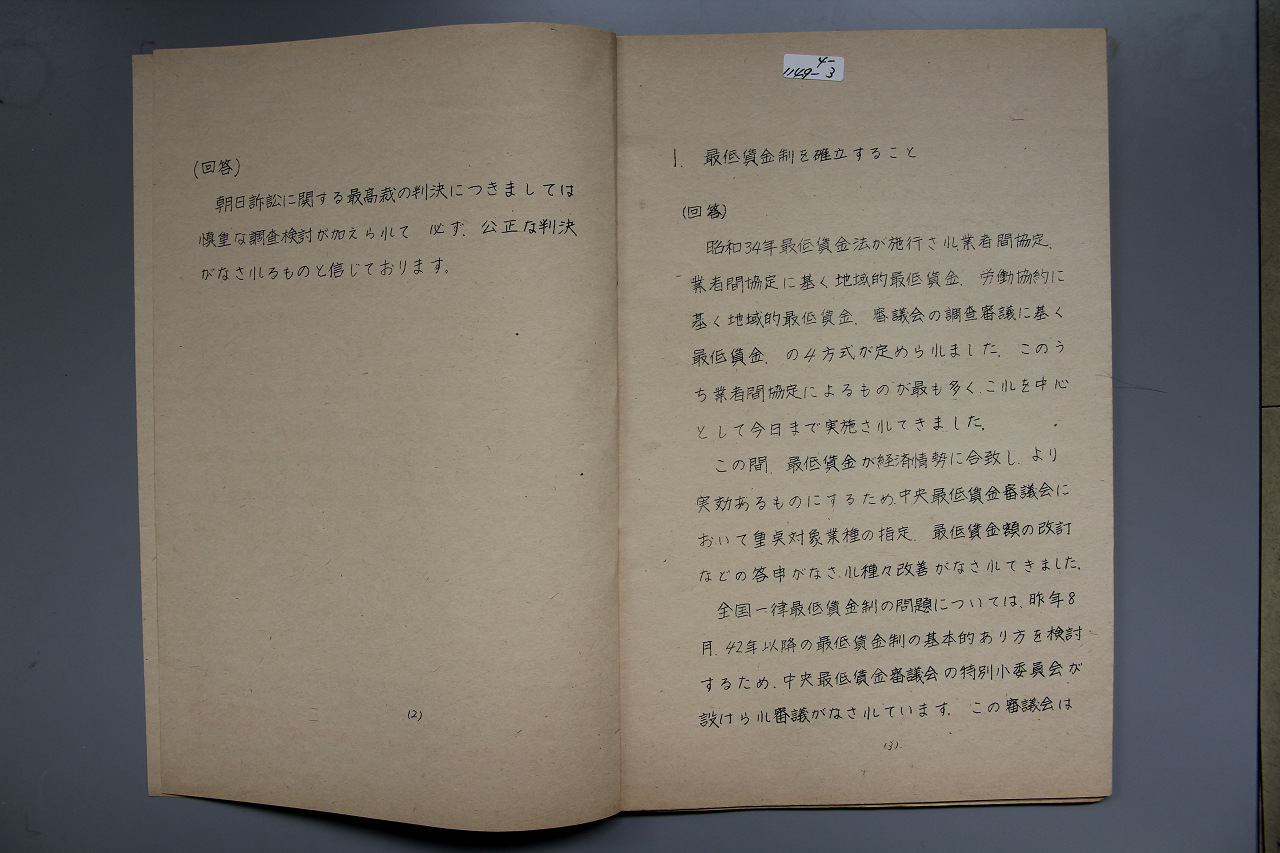 (回答)
朝日訴訟に関する最高裁の判決につきましては
慎重な調査検討が加えられて 必ず、公正な判決
がなされるものと信じております。
(2)
4-
1149-3
1. 最低賃金制を確立すること
(回答)
昭和34年最低賃金法が施行され業者間協定、
業者間協定に基く地域的最低賃金、労働協約に
基く地域的最低賃金、審議会の調査審議に基く
最低賃金、の4方式が定められました。このう
ち業者間協定によるものが最も多く、これを中心
として今日まで実施されてきました。
この間、最低賃金が経済情勢に合致し、より
実効あるものにするため、中央最低賃金審議会に
おいて重点対象業種の指定、最低賃金額の改訂
などの答申がなされ種々改善がなされてきました。
全国一律最低賃金制の問題については、昨年8
月、42年以降の最低賃金制の基本的あり方を検討
するため、中央最低賃金審議会の特別小委員会が
設けられ審議がなされています。この審議会は
(3)